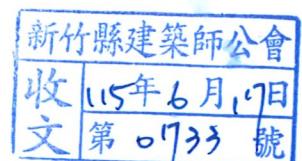 新竹縣建築師公會
收文
115年6月17日
第0733號